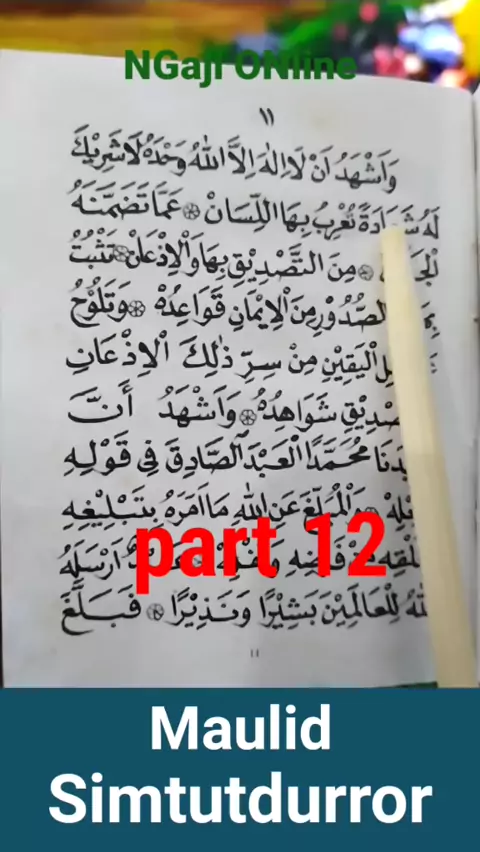 NGaji ONline
١١
وَاَشْهَدُ اَنْ لَا اِلٰهَ اِلَّا اللّٰهُ وَحْدَهُ لَا شَرِيْكَ
لَهُ شَهَادَةً تُعْرِبُ بِهَا اللِّسَانْ ۞ عَمَّا تَضَمَّنَهُ
مِنَ التَّصْدِيْقِ بِهَا وَالْاِذْعَانْ ۞ تَثْبُتُ
الصُّدُوْرِ مِنَ الْاِيْمَانِ قَوَاعِدُهْ ۞ وَتَلُوْحُ
الْيَقِيْنِ مِنْ سِرِّ ذٰلِكَ الْاِذْعَانِ
شَوَاهِدُهْ ۞ وَاَشْهَدُ أَنَّ
مُحَمَّدًا الْعَبْدَ الصَّادِقَ فِي قَوْلِهِ
وَالْمُبَلِّغَ عَنِ اللّٰهِ مَا اَمَرَهُ بِتَبْلِيْغِهِ
اَرْسَلَهُ
لِلْعَالَمِيْنَ بَشِيْرًا وَنَذِيْرًا ۞ فَبَلَّغَ
part 12
١١
Maulid
Simtutdurror